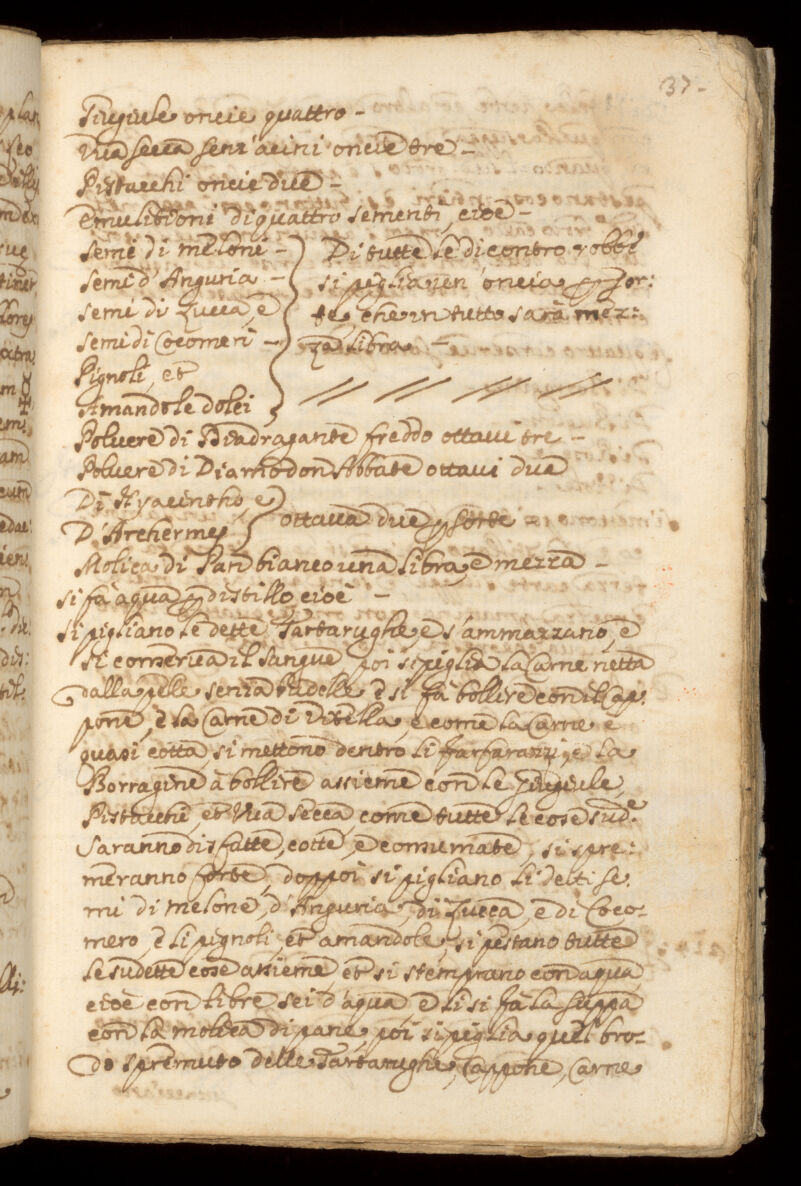 37-
Giugiule oncie quattro -
Uva secca senz'acini oncie tre -
Pistacchi oncie due -
Emulitioni di quattro sementi, cioè -
semi di meloni -
semi d'Anguria -
semi di Zucca, è
semi di Cocomeri -
Pignoli, et
Amandole dolci
Di tutte le dicontro robbe
si piglia un'oncia p sor:
te, che in tutto sara mez:
za libra -
Polvere di Diadragante freddo ottavi tre -
Polvere di Diamodon Abbate ottavi due
Di Hyacintho, e
D'Archermes
ottava due p sorte
Molica di Pan bianco una libra, e mezza -
si fà aqua p distillo, cioè -
si pigliano le dette Tartarughe, e s'ammazzano, e
si conserva il sangue poi si piglia la Carne netta
dalla pelle senza budelle è si fà bollire con il Cap-
pone, è la Carne di Vitella, e come la Carne è
quasi cotta, si mettono dentro li farfarazzi, e la
Borragine à bollire assieme con le Giugiule,
Pistacchi, et Uva secca, come tutte le cose sud.e
saranno disfatte, cotte, è consumate, si spre:
meranno forte, doppoi si pigliano li detti se,
mi di melone, d'Anguria, di Zucca, e di Coco-
mero, è li pignoli, et amandole, si pestano tutte
le sudette cose assieme et si stemprano con aqua
cioè con libre sei d'aqua è li si fà la suppa
con la molica di pane, poi si piglia quel bro-
do spremuto delle Tartarughe, Cappone, Carne